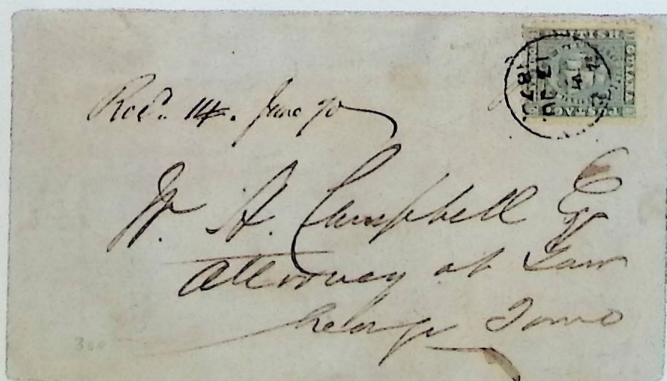 Recd. 14. June 70
W. A. Campbell Esq
Attorney at Law
George Town
300